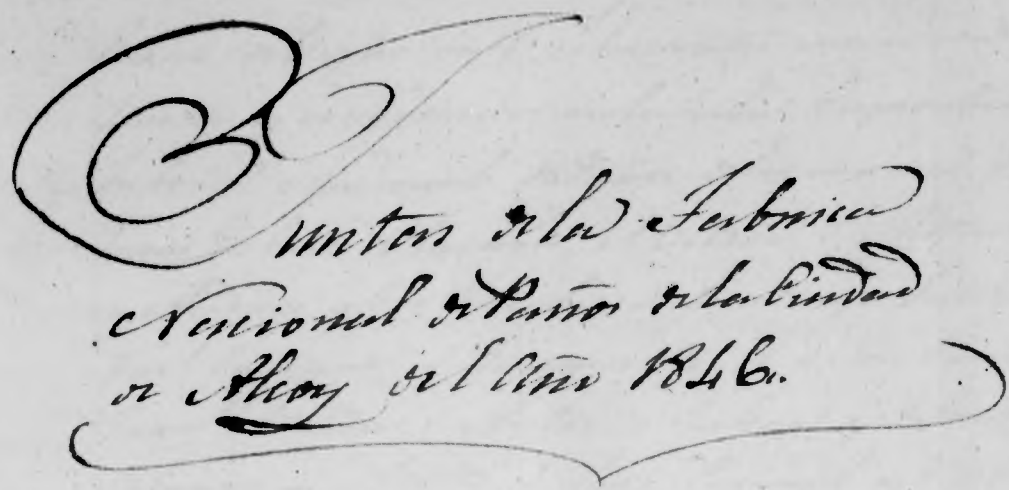 Juntas de la Fabrica
Nacional de Paños de la Ciudad
de Alcoy del Año 1846.